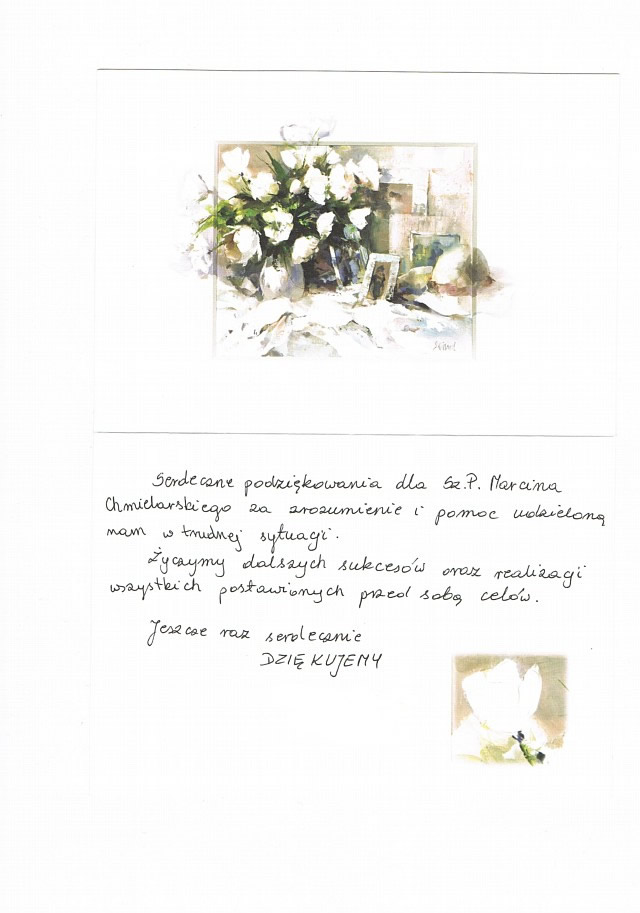 Serdeczne podziękowania dla Sz.P. Marcina
Chmielarskiego za zrozumienie i pomoc udzieloną
nam w trudnej sytuacji.
Życzymy dalszych sukcesów oraz realizacji
wszystkich postawionych przed sobą celów.
Jeszcze raz serdecznie
DZIĘKUJEMY